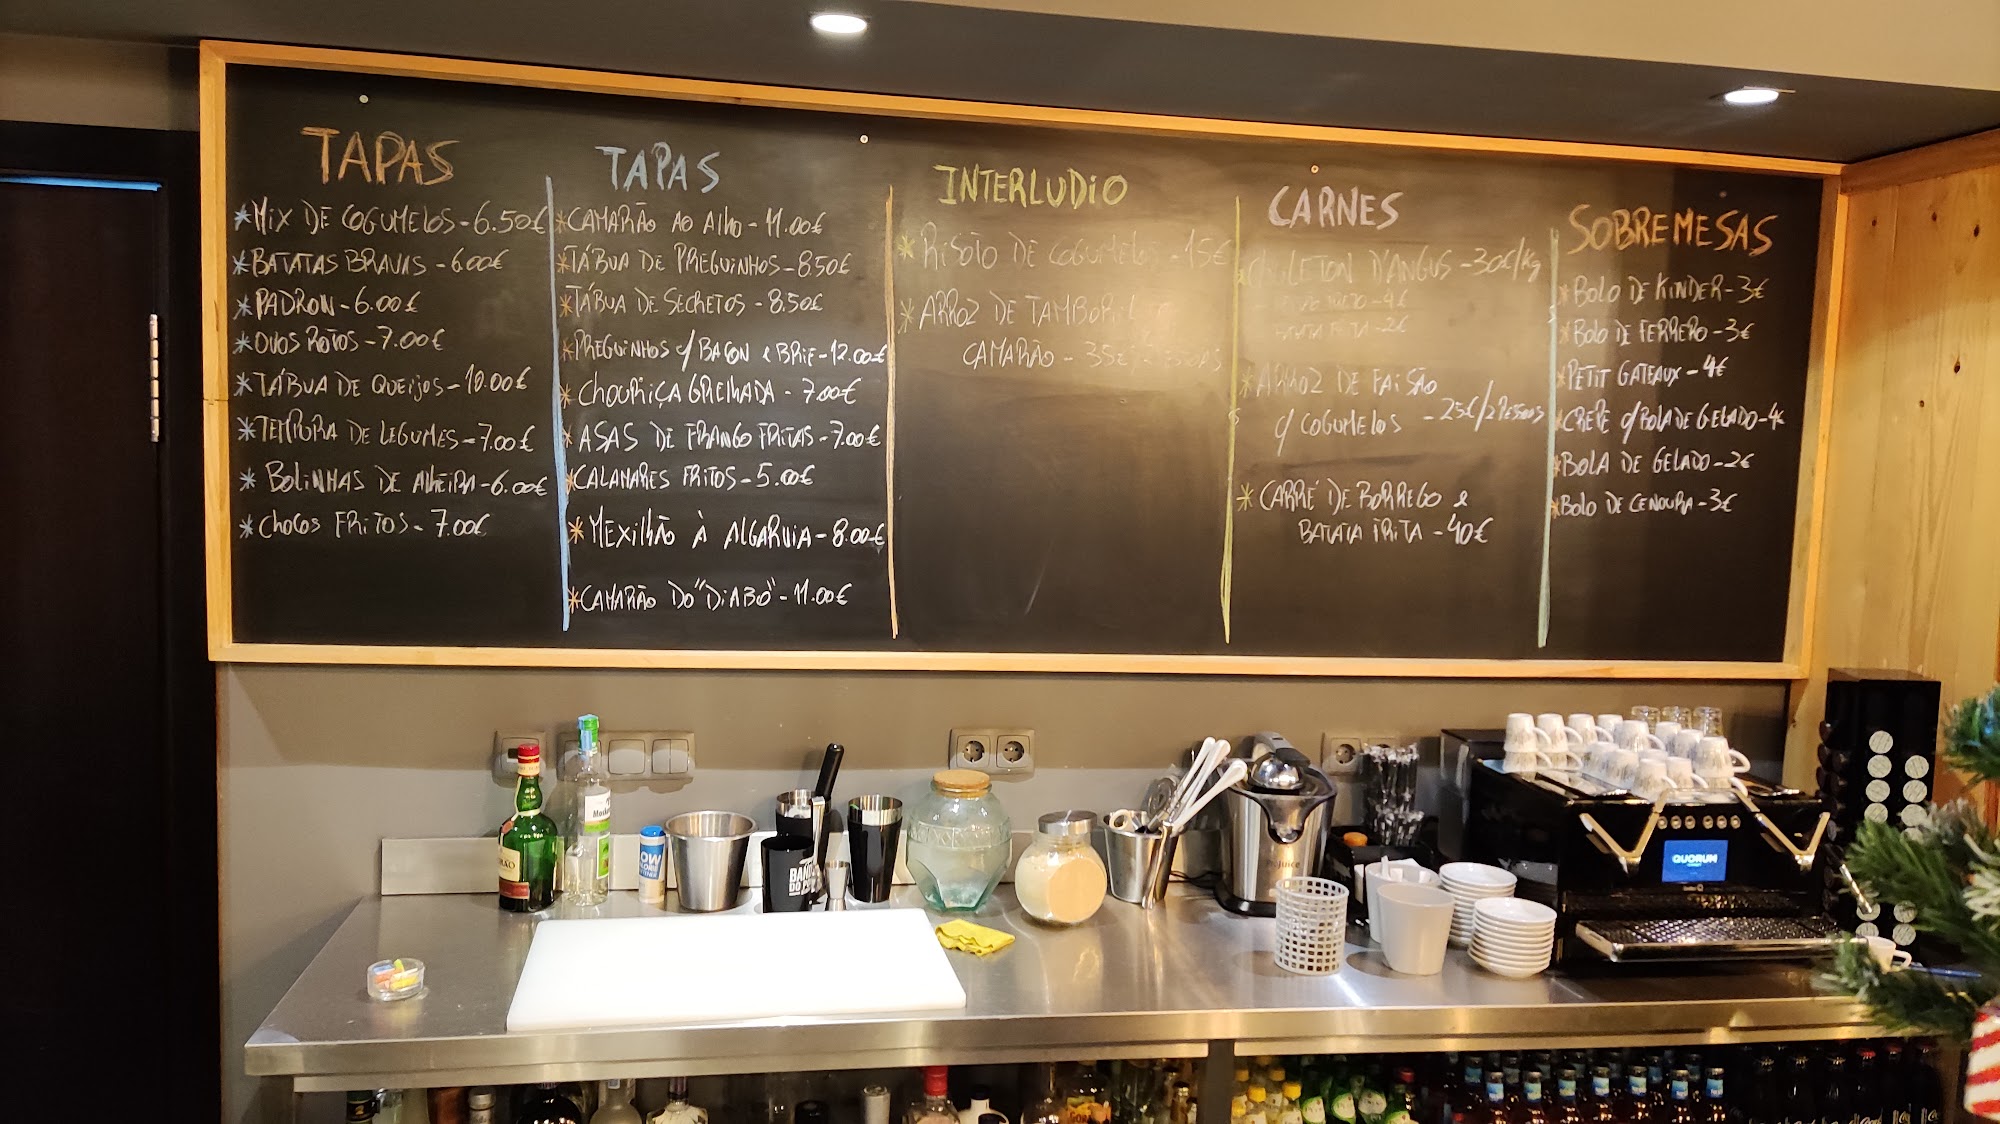 TAPAS
*MIX DE COGUMELOS - 6.50€
*BATATAS BRAVAS - 6.00€
*PADRON - 6.00€
*OVOS ROTOS - 7.00€
*TÁBUA DE QUEIJOS - 10.00€
*TEMPURA DE LEGUMES - 7.00€
*BOLINHAS DE ALHEIRA - 6.00€
*CHOCOS FRITOS - 7.00€
TAPAS
*CAMARÃO AO ALHO - 11.00€
*TÁBUA DE PREGUINHOS - 8.50€
*TÁBUA DE SECRETOS - 8.50€
*PREGUINHOS c/ BACON e BRIE - 12.00€
*CHOURIÇA GRELHADA - 7.00€
*ASAS DE FRANGO FRITAS - 7.00€
*CALAMARES FRITOS - 5.00€
*MEXILHÃO À ALGARVIA - 8.00€
*CAMARÃO DO "DIABO" - 11.00€
INTERLUDIO
*RISOTO DE COGUMELOS - 15€
*ARROZ DE TAMBORIL
CAMARÃO - 35€
CARNES
D'ANGUS - 30€/kg
- 4€
BATATA FRITA - 2€
*ARROZ DE FAISÃO
c/ COGUMELOS - 25€/2 PESSOAS
*CARRÉ DE BORREGO e
BATATA FRITA - 40€
SOBREMESAS
*BOLO DE KINDER - 3€
*BOLO DE FERRERO - 3€
*PETIT GATEAUX - 4€
*CREPE c/ BOLA DE GELADO - 4€
*BOLA DE GELADO - 2€
*BOLO DE CENOURA - 3€
QUORUM